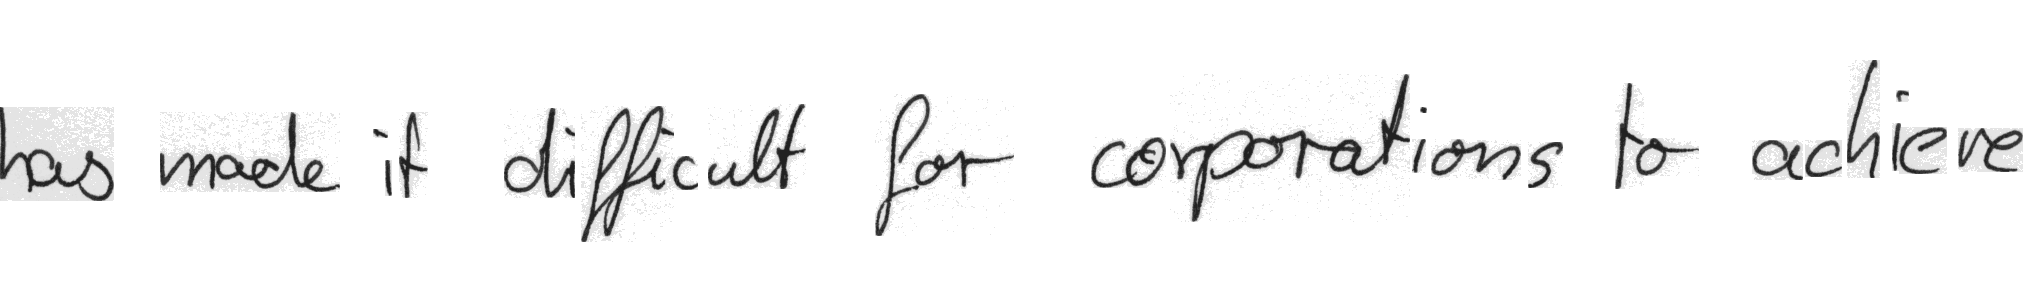 has made it difficult for corporations to achieve